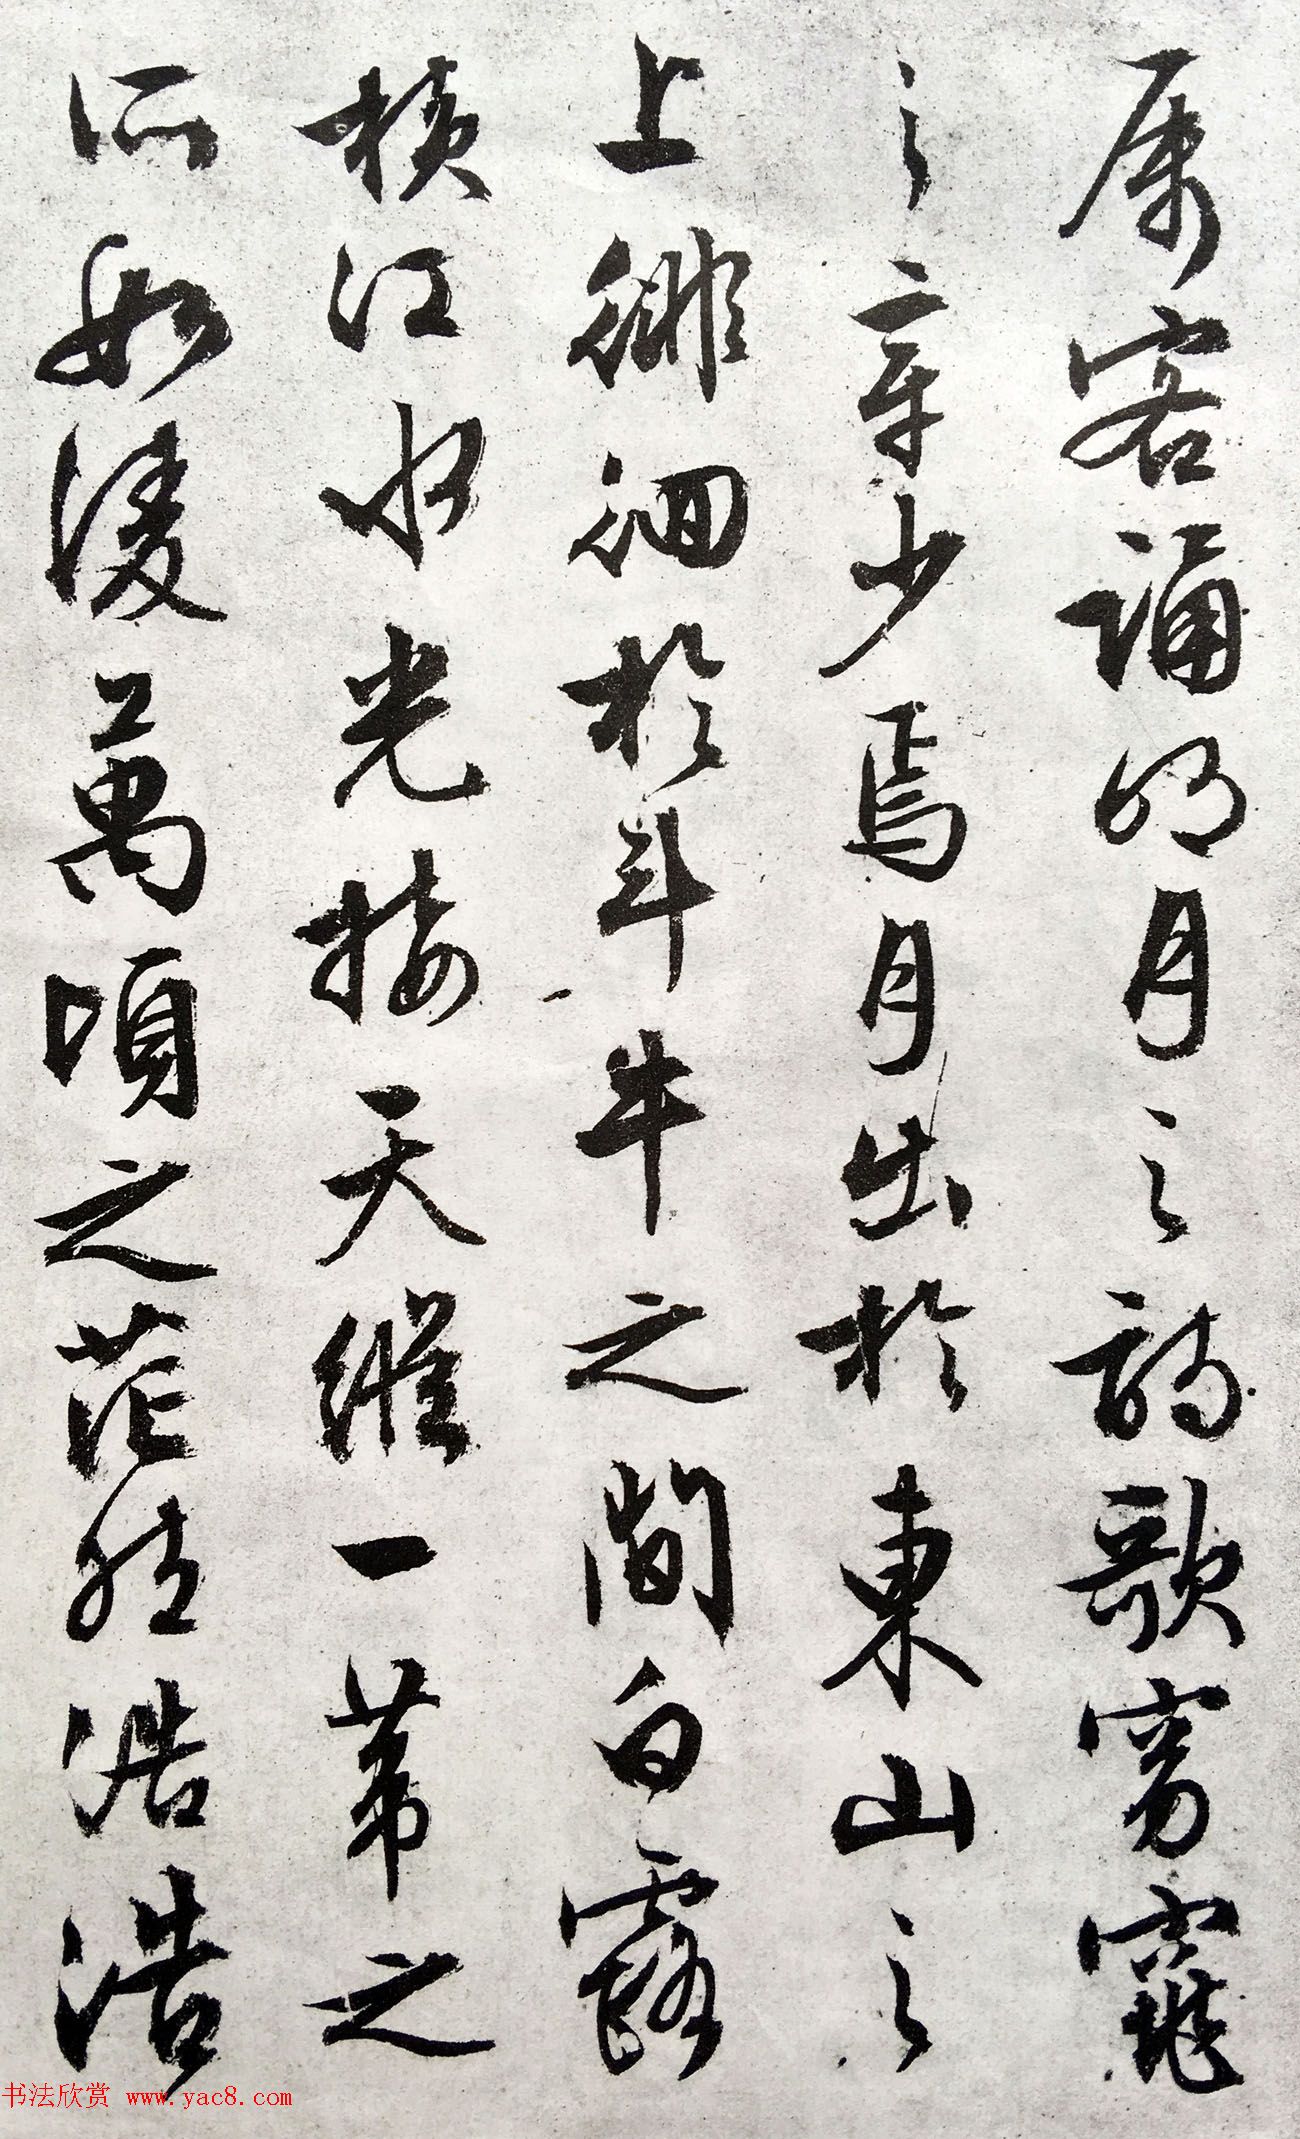 属客誦明月之詩歌窈窕
之章少焉月出於東山之
上徘徊於斗牛之間白露
横江水光接天縱一葦之
所如淩萬頃之茫然浩浩
书法欣赏 www.yac8.com